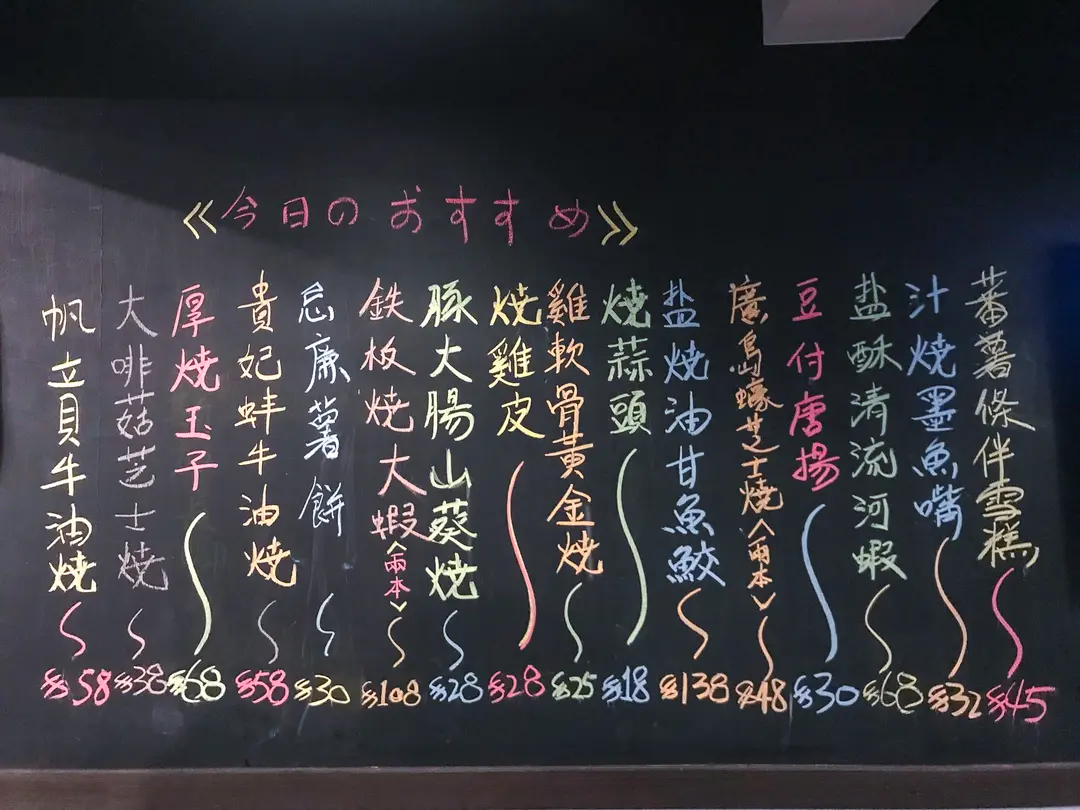 《今日のおすすめ》
蕃薯條伴雪糕 $45
汁燒墨魚嘴 $32
盐酥清流河蝦 $68
豆付唐揚 $30
廣島蠔芝士燒〈兩本〉 $48
盐燒油甘魚鮫 $138
燒蒜頭 $18
雞軟骨黄金燒 $25
燒雞皮 $28
豚大腸山葵燒 $28
鉄板燒大蝦〈兩本〉 $108
忌廉薯餅 $30
貴妃蚌牛油燒 $58
厚燒玉子 $68
大啡菇芝士燒 $38
帆立貝牛油燒 $58